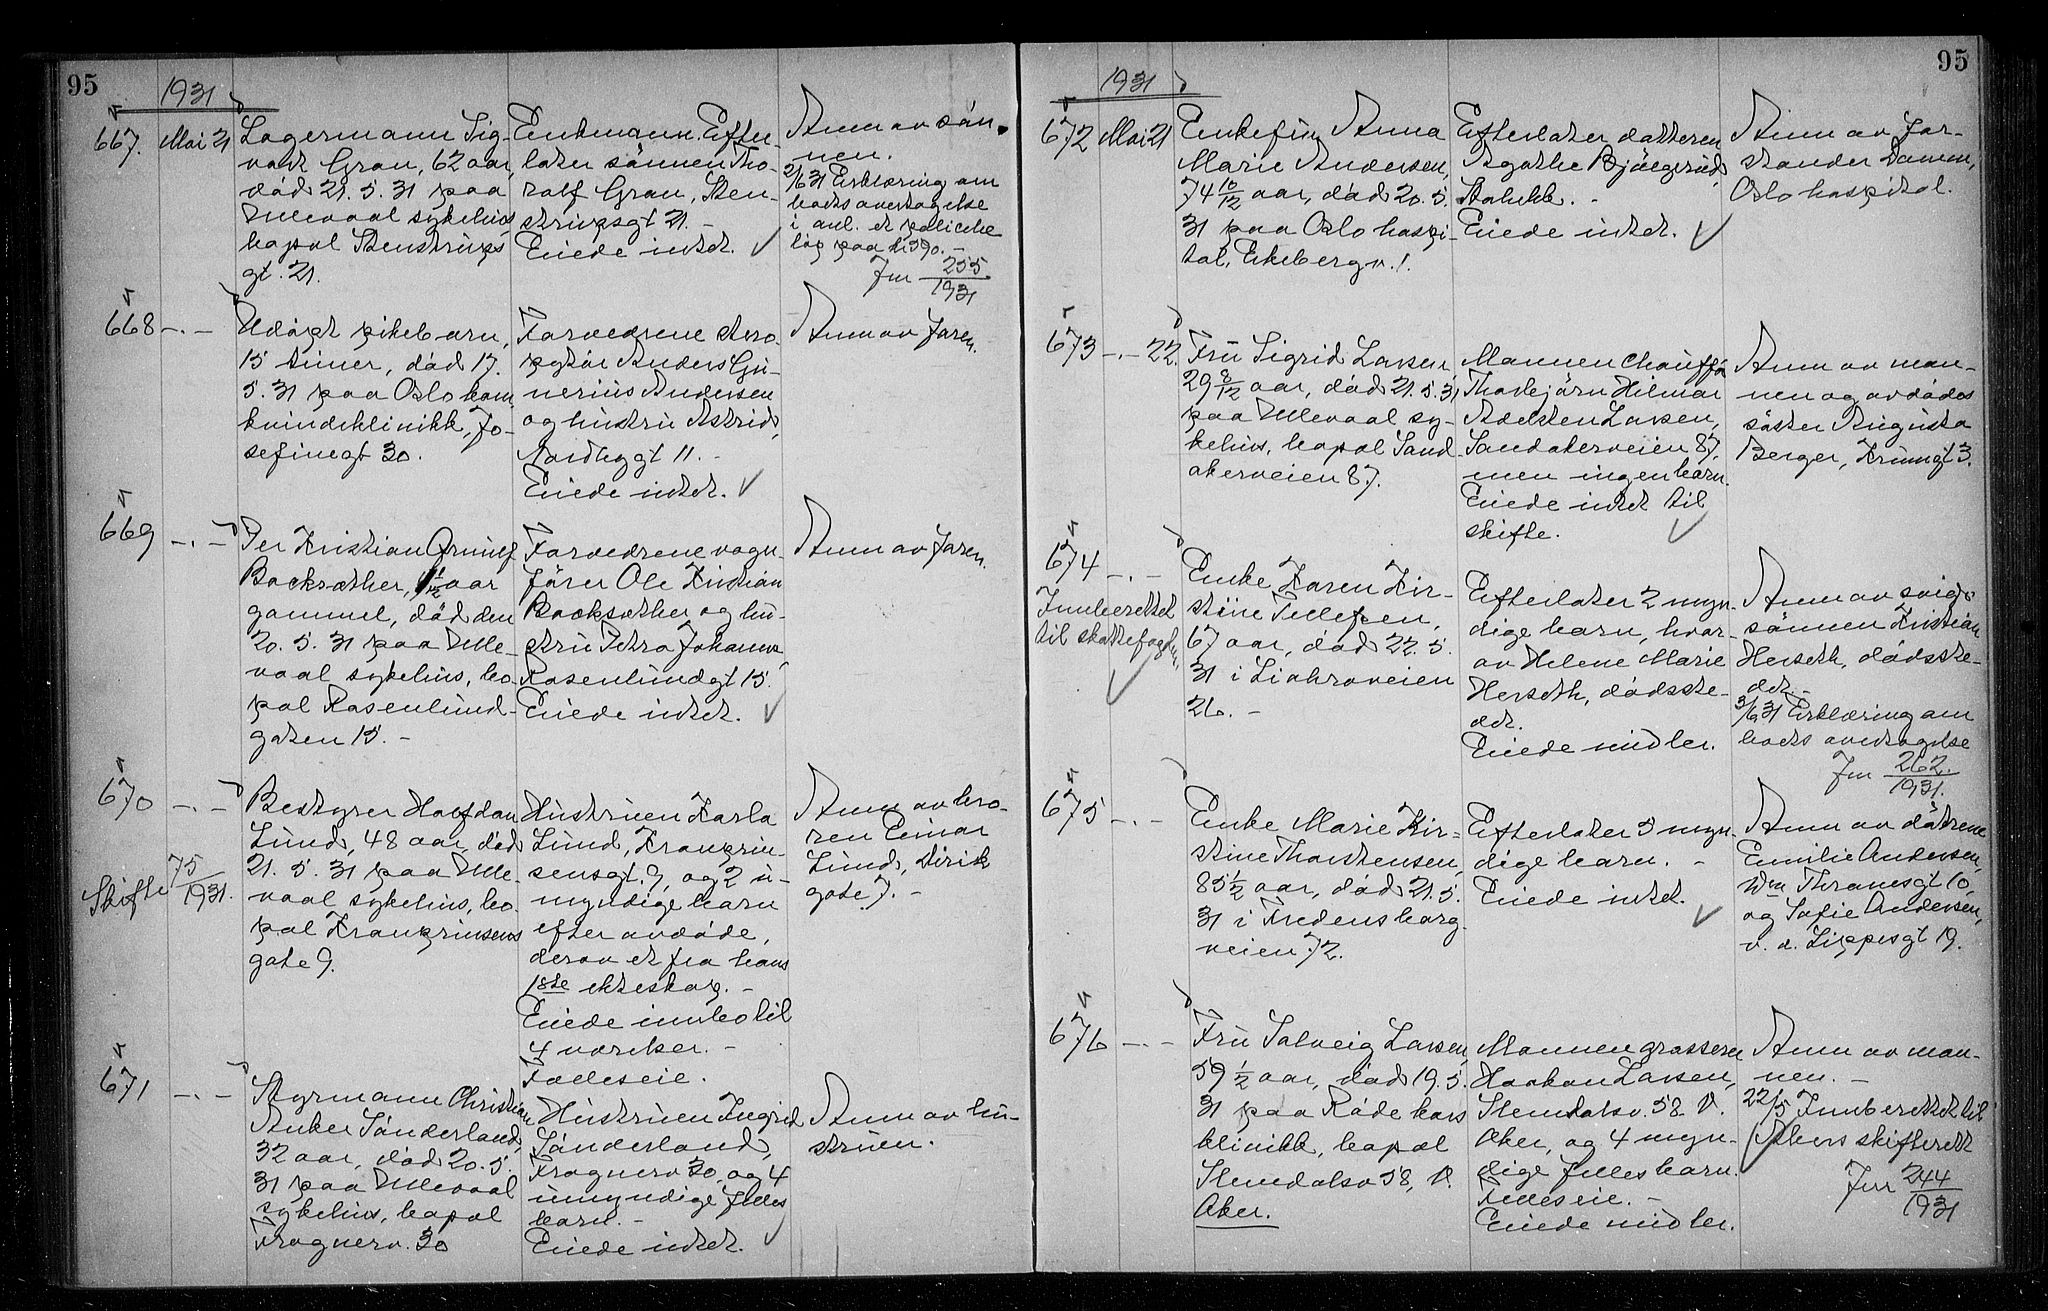 95
1931
667. Mai 21
Lagermann Sig-
vart Gran, 62 aar,
död 21.5.31 paa
Ullevaal sykehus,
bopæl Stenstrups
gt. 21.
Enkemann. Efter-
later sönnen Tho-
ralf Gran, Sten-
strupsgt 21. -
Eiede intet.
Anm av sön-
nen.
2/6 31 Erklæring om
boets overtagelse
i anl. et
paa kr 590. -
Jnr 255/1931
668 -.-
Udöpt pikebarn,
15 timer, död 17.
5.31 paa Oslo kom.
kvindeklinikk, Jo-
sefinegt 30.
Forældrene stro-
Anders Gu-
nerius Andersen
og hustru Astrid,
Nordbygt 11. -
Eiede intet.
Anm av faren.
669 -.-
Per Kristian Arnulf
Backsæther, 1/12 aar
gammel, död den
20.5.31 paa Ulle-
vaal sykehus, bo-
pæl Rosenlund-
gaten 15. -
Forældrene vogn-
förer Ole Kristian
Backsæther og hu-
stru Petra Johanna,
Rosenlundgt 15.
Eiede intet.
Anm av faren.
670 -.-
Skifte 75/1931.
Bestyrer Halfdan
Lund, 48 aar, död
21.5.31 paa Ulle-
vaal sykehus, bo-
pæl Kronprinsens
gate 9.
Hustruen Karla
Lund, Kronprin-
sensgt. 9, og 2 u-
myndige barn
efter avdöde,
derav et fra hans
1ste ekteskap. -
Eiede innbo til
4 værelser. -
Fælleseie.
Anm av bro-
ren Einar
Lund, Diriks
gate 7. -
671 -.-
Styrmann Christian
Anker Sönderland,
32 aar, död 20.5.
31 paa Ullevaal
sykehus, bopæl
Frognerv. 30
Hustruen Ingrid
Sönderland,
Frognerv 30, og 4
umyndige felles
barn. -
Eiede intet.
Anm av hu-
struen.
95
1931
672 Mai 21
Enkefru Anna
Marie Andersen,
74 10/12 aar, död 20.5.
31 paa Oslo hospi-
tal, Ekebergv. 1.
Efterlater datteren
Agathe Bjöegerud,
Stabekk. -
Eiede intet.
Anm av for-
stander Damm,
Oslo hospital.
673 -.- 22.
Fru Sigrid Larsen,
29 8/12 aar, död 21.5.31
paa Ullevaal sy-
kehus, bopæl Sand-
akerveien 87.
Mannen chaufför
Thorbjörn Hilmar
Adelsten Larsen,
Sandakerveien 87,
men ingen barn.
Eiede intet til
skifte.
Anm av man-
nen og avdödes
söster Augusta
Berger, Krumgt 3.
674 -.-
Innberettet
til skattefogden.
Enke Karen Kir-
stine Tellefsen,
67 aar, död 22.5.
31 i Livbroveien
26. -
Efterlater 2 myn-
dige barn, hvor-
av Helene Marie
Herseth, dödsste-
det.
Eiede midler.
Anm av sviger-
sönnen Kristian
Herseth, dödsste-
det. -
3/6 31 Erklæring om
boets overtagelse
Jnr 262/1931.
675 -.-
Enke Marie Kir-
stine Thorstensen,
85 1/2 aar, död 21.5.
31 i Fredensborg-
veien 72.
Efterlater 5 myn-
dige barn. -
Eiede intet.
Anm av dötrene
Emilie Andersen,
Wm Thranesgt 10,
og Sofie Andersen,
v. d. Lippesgt 19.
676 -.-
Fru Solveig Larsen,
59 1/2 aar, död 19.5.
31 paa Röde kors
klinikk, bopæl
Slemdalsv 58, V.
Aker.
Mannen grosserer
Haakon Larsen,
Slemdalsv. 58 V.
Aker, og 4 myn-
dige felles barn.
Felleseie. -
Eiede midler.
Anm av man-
nen. -
22/5 Innberettet til
Akers skifterett
Jnr 244/1931